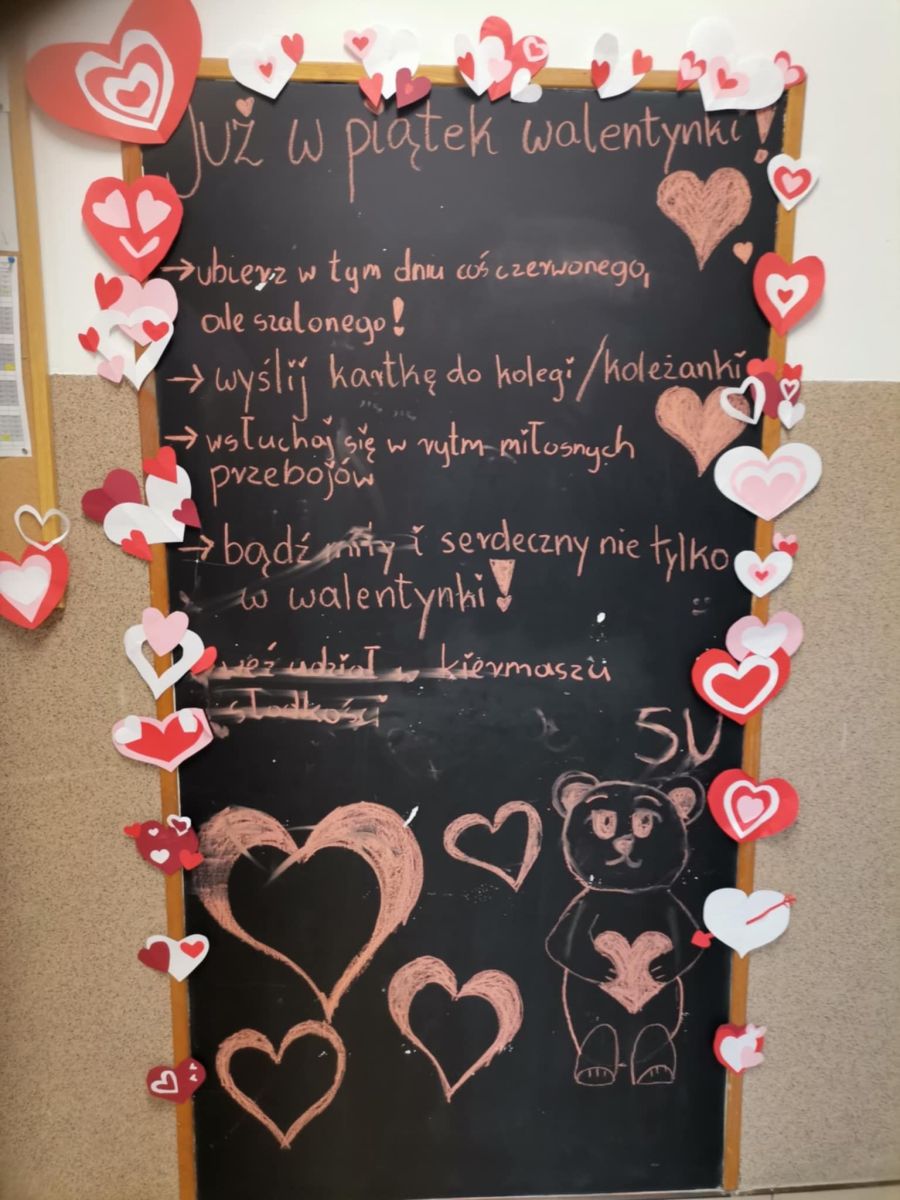 Już w piątek walentynki!
→ ubierz w tym dniu coś czerwonego,
ale szalonego!
→ wyślij kartkę do kolegi/koleżanki
→ wsłuchaj się w rytm miłosnych
przebojów
→ bądź miły i serdeczny nie tylko
w walentynki!
weź udział w kiermaszu
słodkości
SU